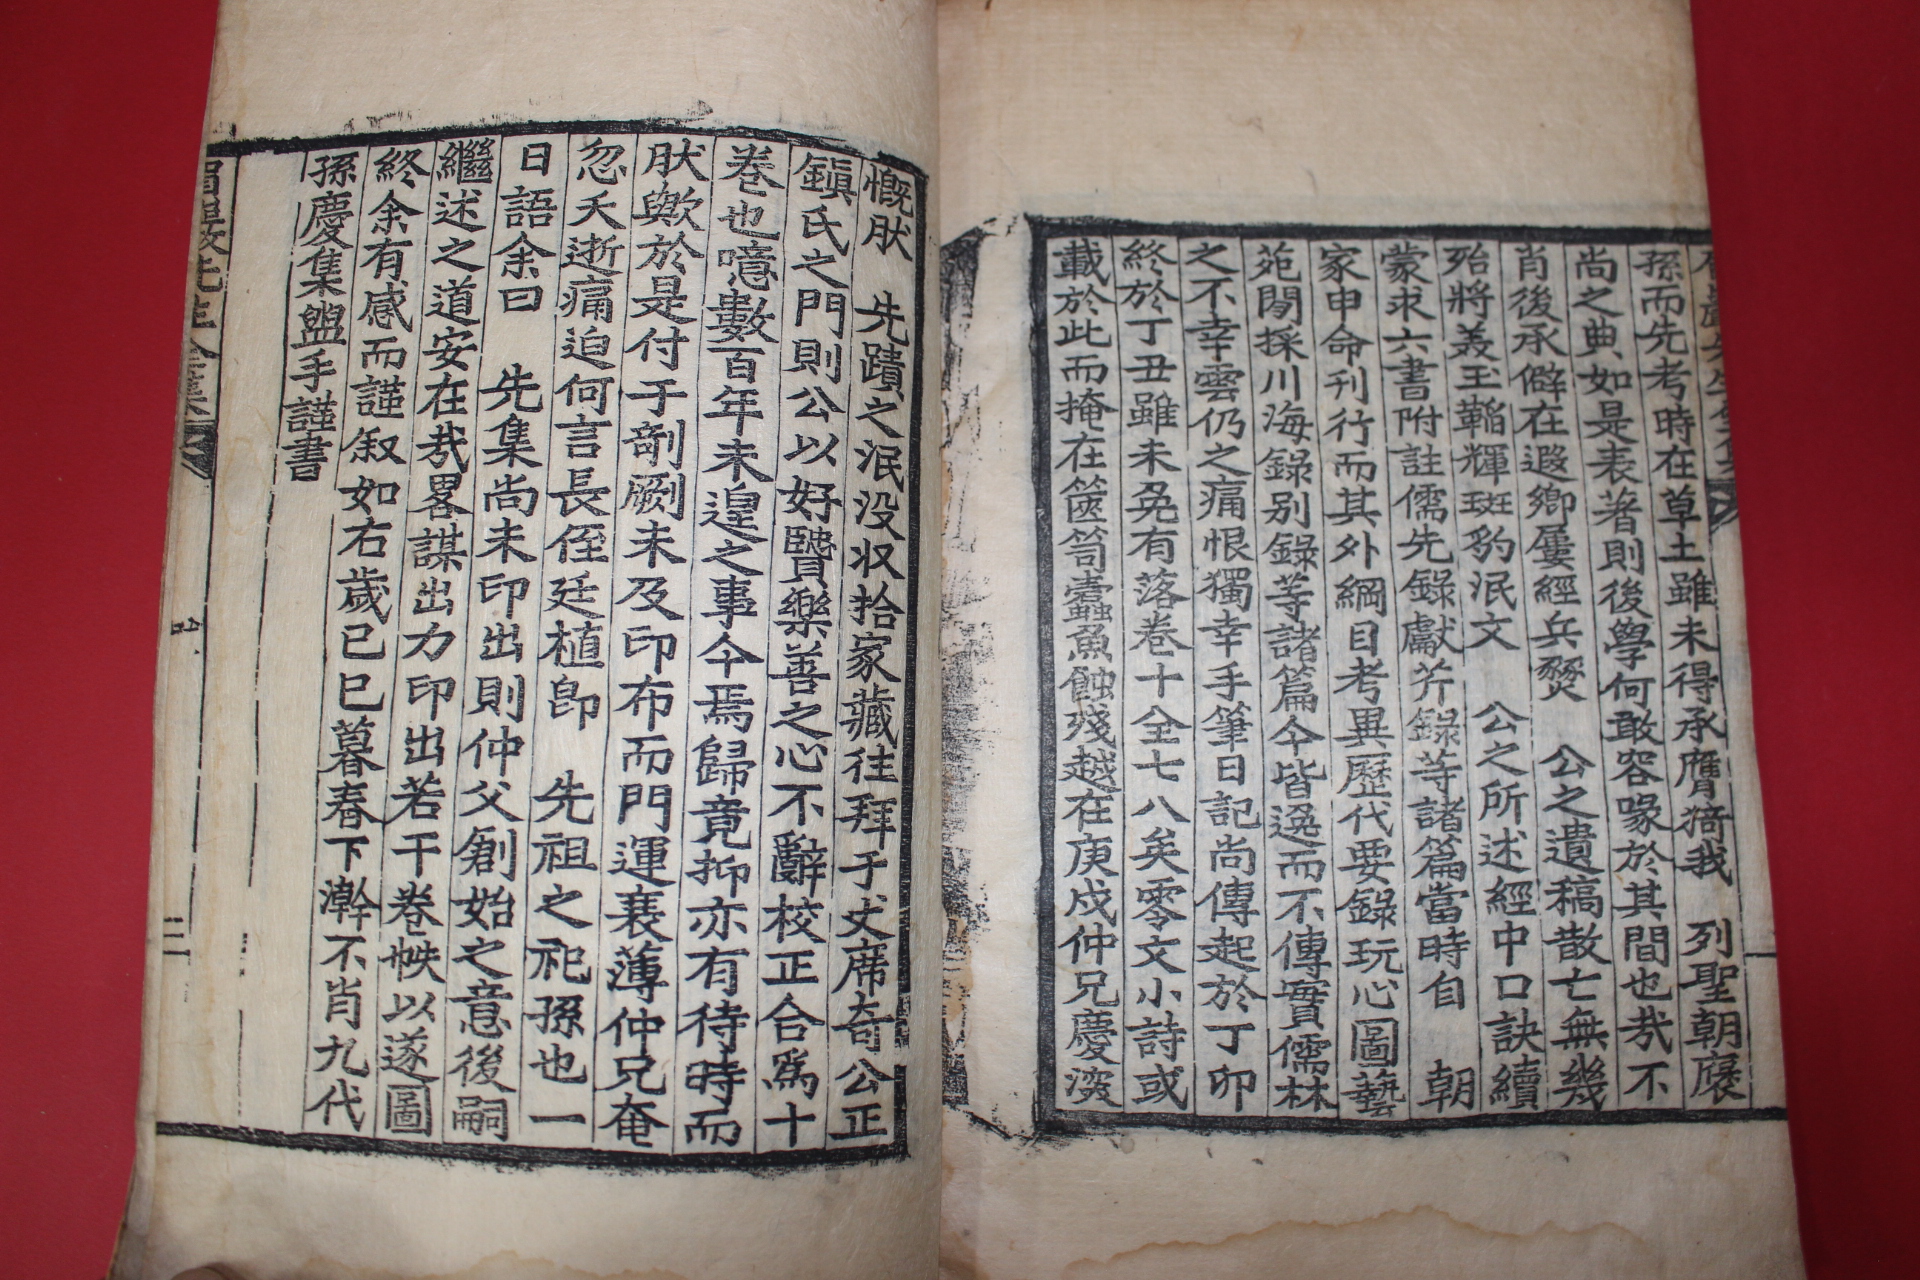 孫而先考時在草土雖未得承膺猗我　列聖朝褒
尚之典如是表著則後學何敢容喙於其間也㢤不
肖後承僻在遐鄉屢經兵燹　公之遺稿散亡無幾
殆將羙玉韜輝斑豹泯文　公之所述經中口訣續
蒙求六書附註儒先錄獻芹錄等諸篇當時自　朝
家申命刊行而其外綱目考異歷代要錄玩心圖藝
苑閱採川海錄別錄等諸篇今皆逸而不傳實儒林
之不幸雲仍之痛恨獨幸手筆日記尚傳起於丁卯
終於丁丑雖未免有落卷十全七八矣零文小詩或
載於此而掩在篋笥蠹魚蝕殘越在庚戍仲兄慶濅
慨肰　先蹟之泯沒収拾家藏徃拜于丈席奇公正
鎭氏之門則公以好賢樂善之心不辭校正合爲十
卷也噫數百年未遑之事今焉歸竟抑亦有待時而
肰歟於是付于剞劂未及印布而門運衰薄仲兄奄
忽夭逝痛迫何言長侄廷植卽　先祖之祀孫也一
日語余曰　先集尚未印出則仲父創始之意後嗣
繼述之道安在㢤畧謀出力印出若干卷帙以遂圖
終余有感而謹叙如右歲己巳暮春下澣不肖九代
孫慶集盥手謹書
眉巖先生全集
三